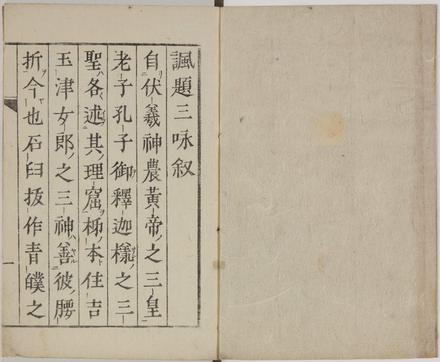 諷題三咏叙
自伏羲神農黄帝之三皇
老子孔子御釋迦様之三
聖各述其理窟柹本住吉
玉津女郎之三神善彼腰
折今也石臼抜作青瓢之